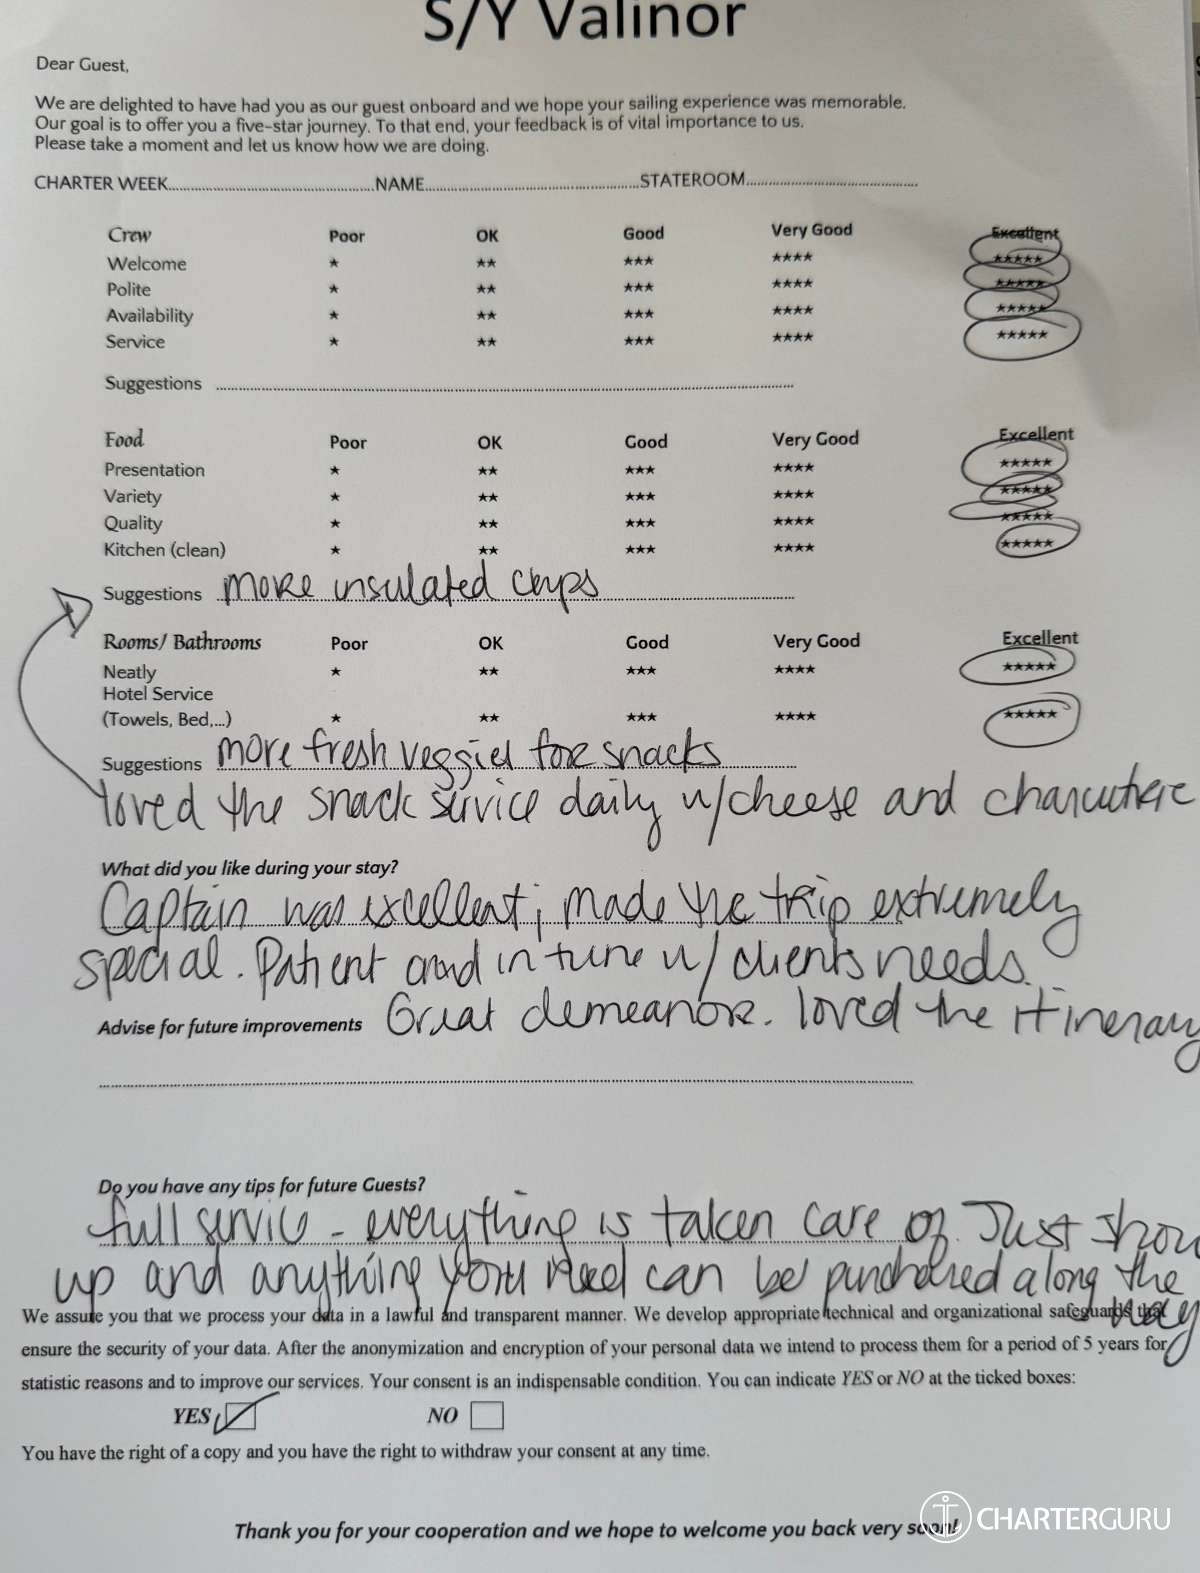 S/Y Valinor
Dear Guest,
We are delighted to have had you as our guest onboard and we hope your sailing experience was memorable.
Our goal is to offer you a five-star journey. To that end, your feedback is of vital importance to us.
Please take a moment and let us know how we are doing.
CHARTER WEEK....................NAME....................STATEROOM....................
Crew Poor OK Good Very Good Excellent
Welcome ★ ★★ ★★★ ★★★★ ★★★★★
Polite ★ ★★ ★★★ ★★★★ ★★★★★
Availability ★ ★★ ★★★ ★★★★ ★★★★★
Service ★ ★★ ★★★ ★★★★ ★★★★★
Suggestions ....................
Food Poor OK Good Very Good Excellent
Presentation ★ ★★ ★★★ ★★★★ ★★★★★
Variety ★ ★★ ★★★ ★★★★ ★★★★★
Quality ★ ★★ ★★★ ★★★★ ★★★★★
Kitchen (clean) ★ ★★ ★★★ ★★★★ ★★★★★
Suggestions more insulated cups
Rooms/ Bathrooms Poor OK Good Very Good Excellent
Neatly ★ ★★ ★★★ ★★★★ ★★★★★
Hotel Service
(Towels, Bed,...) ★ ★★ ★★★ ★★★★ ★★★★★
Suggestions more fresh veggies for snacks
loved the snack service daily w/cheese and charcuterie
What did you like during your stay?
Captain was excellent; made the trip extremely
special. Patient and in tune w/ clients needs.
Advise for future improvements Great demeanor. loved the itinerary
....................
Do you have any tips for future Guests?
full service - everything is taken care of. Just show
up and anything you need can be purchased along the
way
We assure you that we process your data in a lawful and transparent manner. We develop appropriate technical and organizational safeguards that
ensure the security of your data. After the anonymization and encryption of your personal data we intend to process them for a period of 5 years for
statistic reasons and to improve our services. Your consent is an indispensable condition. You can indicate YES or NO at the ticked boxes:
YES NO
You have the right of a copy and you have the right to withdraw your consent at any time.
Thank you for your cooperation and we hope to welcome you back very soon!
CHARTERGURU